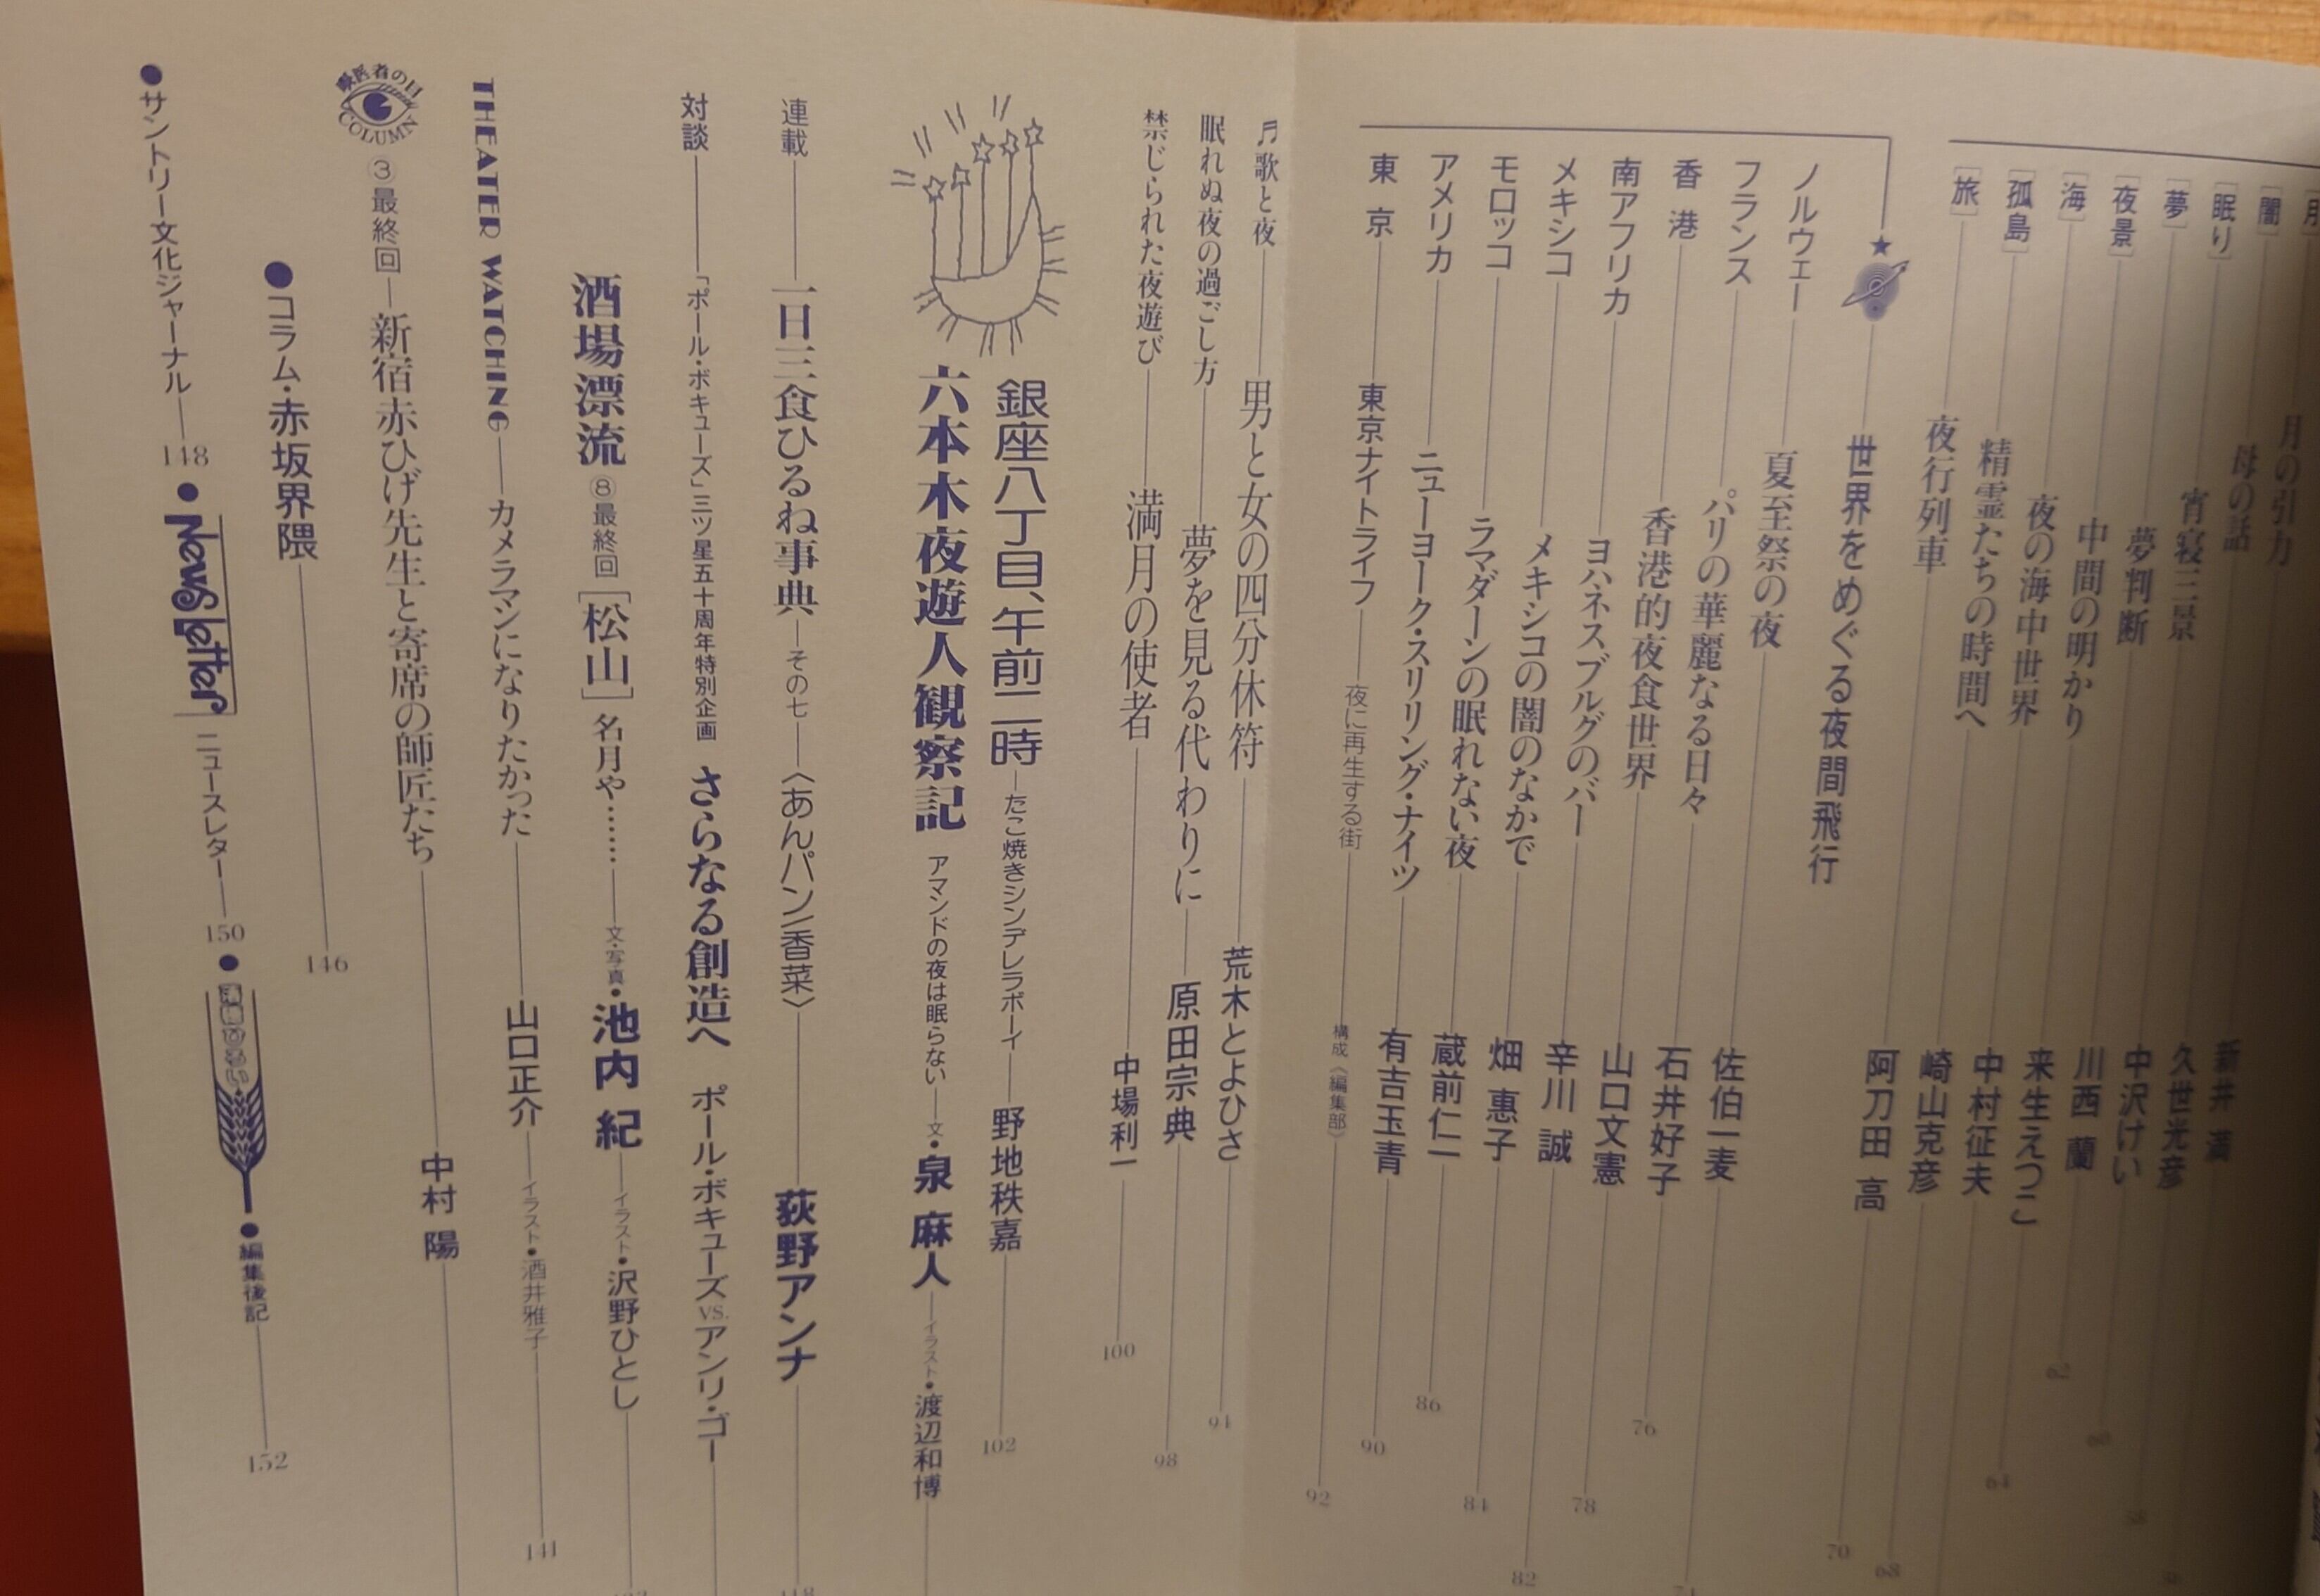 月の引力
[闇] 母の話 新井 満
[眠り] 宵寝三景 久世光彦
[夢] 夢判断 中沢けい
[夜景] 中間の明かり 川西 蘭
[海] 夜の海中世界 来生えつこ 62
[孤島] 精霊たちの時間へ 中村征夫 64
[旅] 夜行列車 崎山克彦 68
世界をめぐる夜間飛行 阿刀田 高 70
ノルウェー 夏至祭の夜 佐伯一麦
フランス パリの華麗なる日々 石井好子 76
香港 香港的夜食世界 山口文憲 78
南アフリカ ヨハネスブルグのバー 辛川 誠 82
メキシコ メキシコの闇のなかで 畑 惠子 84
モロッコ ラマダーンの眠れない夜 蔵前仁一 86
アメリカ ニューヨーク・スリリング・ナイツ 有吉玉青 90
東京 東京ナイトライフ 夜に再生する街 構成《編集部》 92
♬歌と夜 男と女の四分休符 荒木とよひさ 94
眠れぬ夜の過ごし方 夢を見る代わりに 原田宗典 98
禁じられた夜遊び 満月の使者 中場利一 100
銀座八丁目、午前二時 たこ焼きシンデレラボーイ 野地秩嘉 102
六本木夜遊人観察記 アマンドの夜は眠らない 文・泉 麻人 イラスト・渡辺和博
連載 一日三食ひるね事典 その七 〈あんパン香菜〉 荻野アンナ 118
対談 「ポール・ボキューズ」三ツ星五十周年特別企画 さらなる創造へ ポール・ボキューズ VS. アンリ・ゴー
酒場漂流 ⑧最終回 [松山] 名月や…… 文・写真・池内 紀 イラスト・沢野ひとし
THEATER WATCHING カメラマンになりたかった 山口正介 イラスト・酒井雅子 141
獣医者の目 COLUMN ③最終回 新宿赤ひげ先生と寄席の師匠たち 中村 陽
●コラム・赤坂界隈 146
●サントリー文化ジャーナル 148 ●News letter ニュースレター 150 ● ●編集後記 152